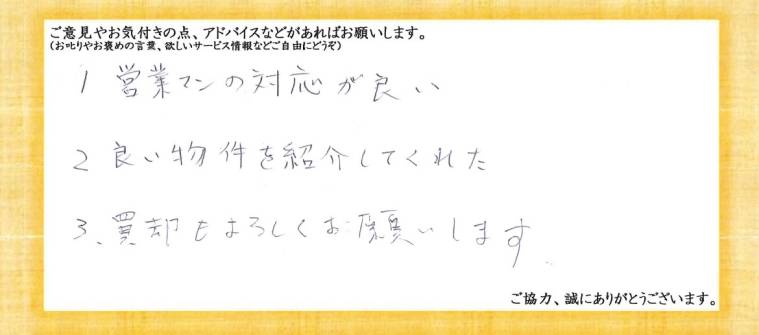 ご意見やお気付きの点、アドバイスなどがあればお願いします。
(お叱りやお褒めの言葉、欲しいサービス情報などご自由にどうぞ)
1 営業マンの対応が良い
2 良い物件を紹介してくれた
3、買却もよろしくお願いします
ご協力、誠にありがとうございます。